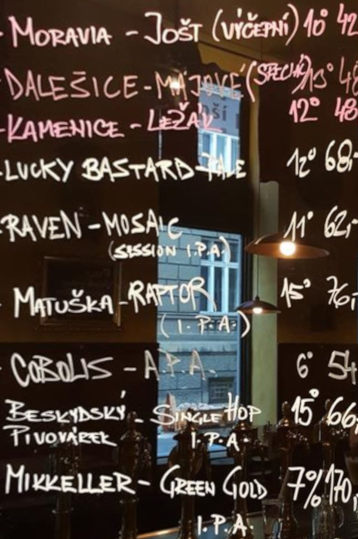 - MORAVIA - JOŠT (VÝČEPNÍ) 10° 42
- DALEŠICE - MÁJOVÉ (SPECIÁL) 13° 48
- KAMENICE - LEŽÁK 12° 48
- LUCKY BASTARD - ALE 12° 68,-
- RAVEN - MOSAIC 11° 62,-
(SESSION I.P.A)
- MATUŠKA - RAPTOR 15° 76,-
(I.P.A)
- COBOLIS - A.P.A. 6° 54
BESKYDSKÝ - SINGLE HOP 15° 66,
PIVOVÁREK I.P.A
MIKKELLER - GREEN GOLD 7% 170,
I.P.A.